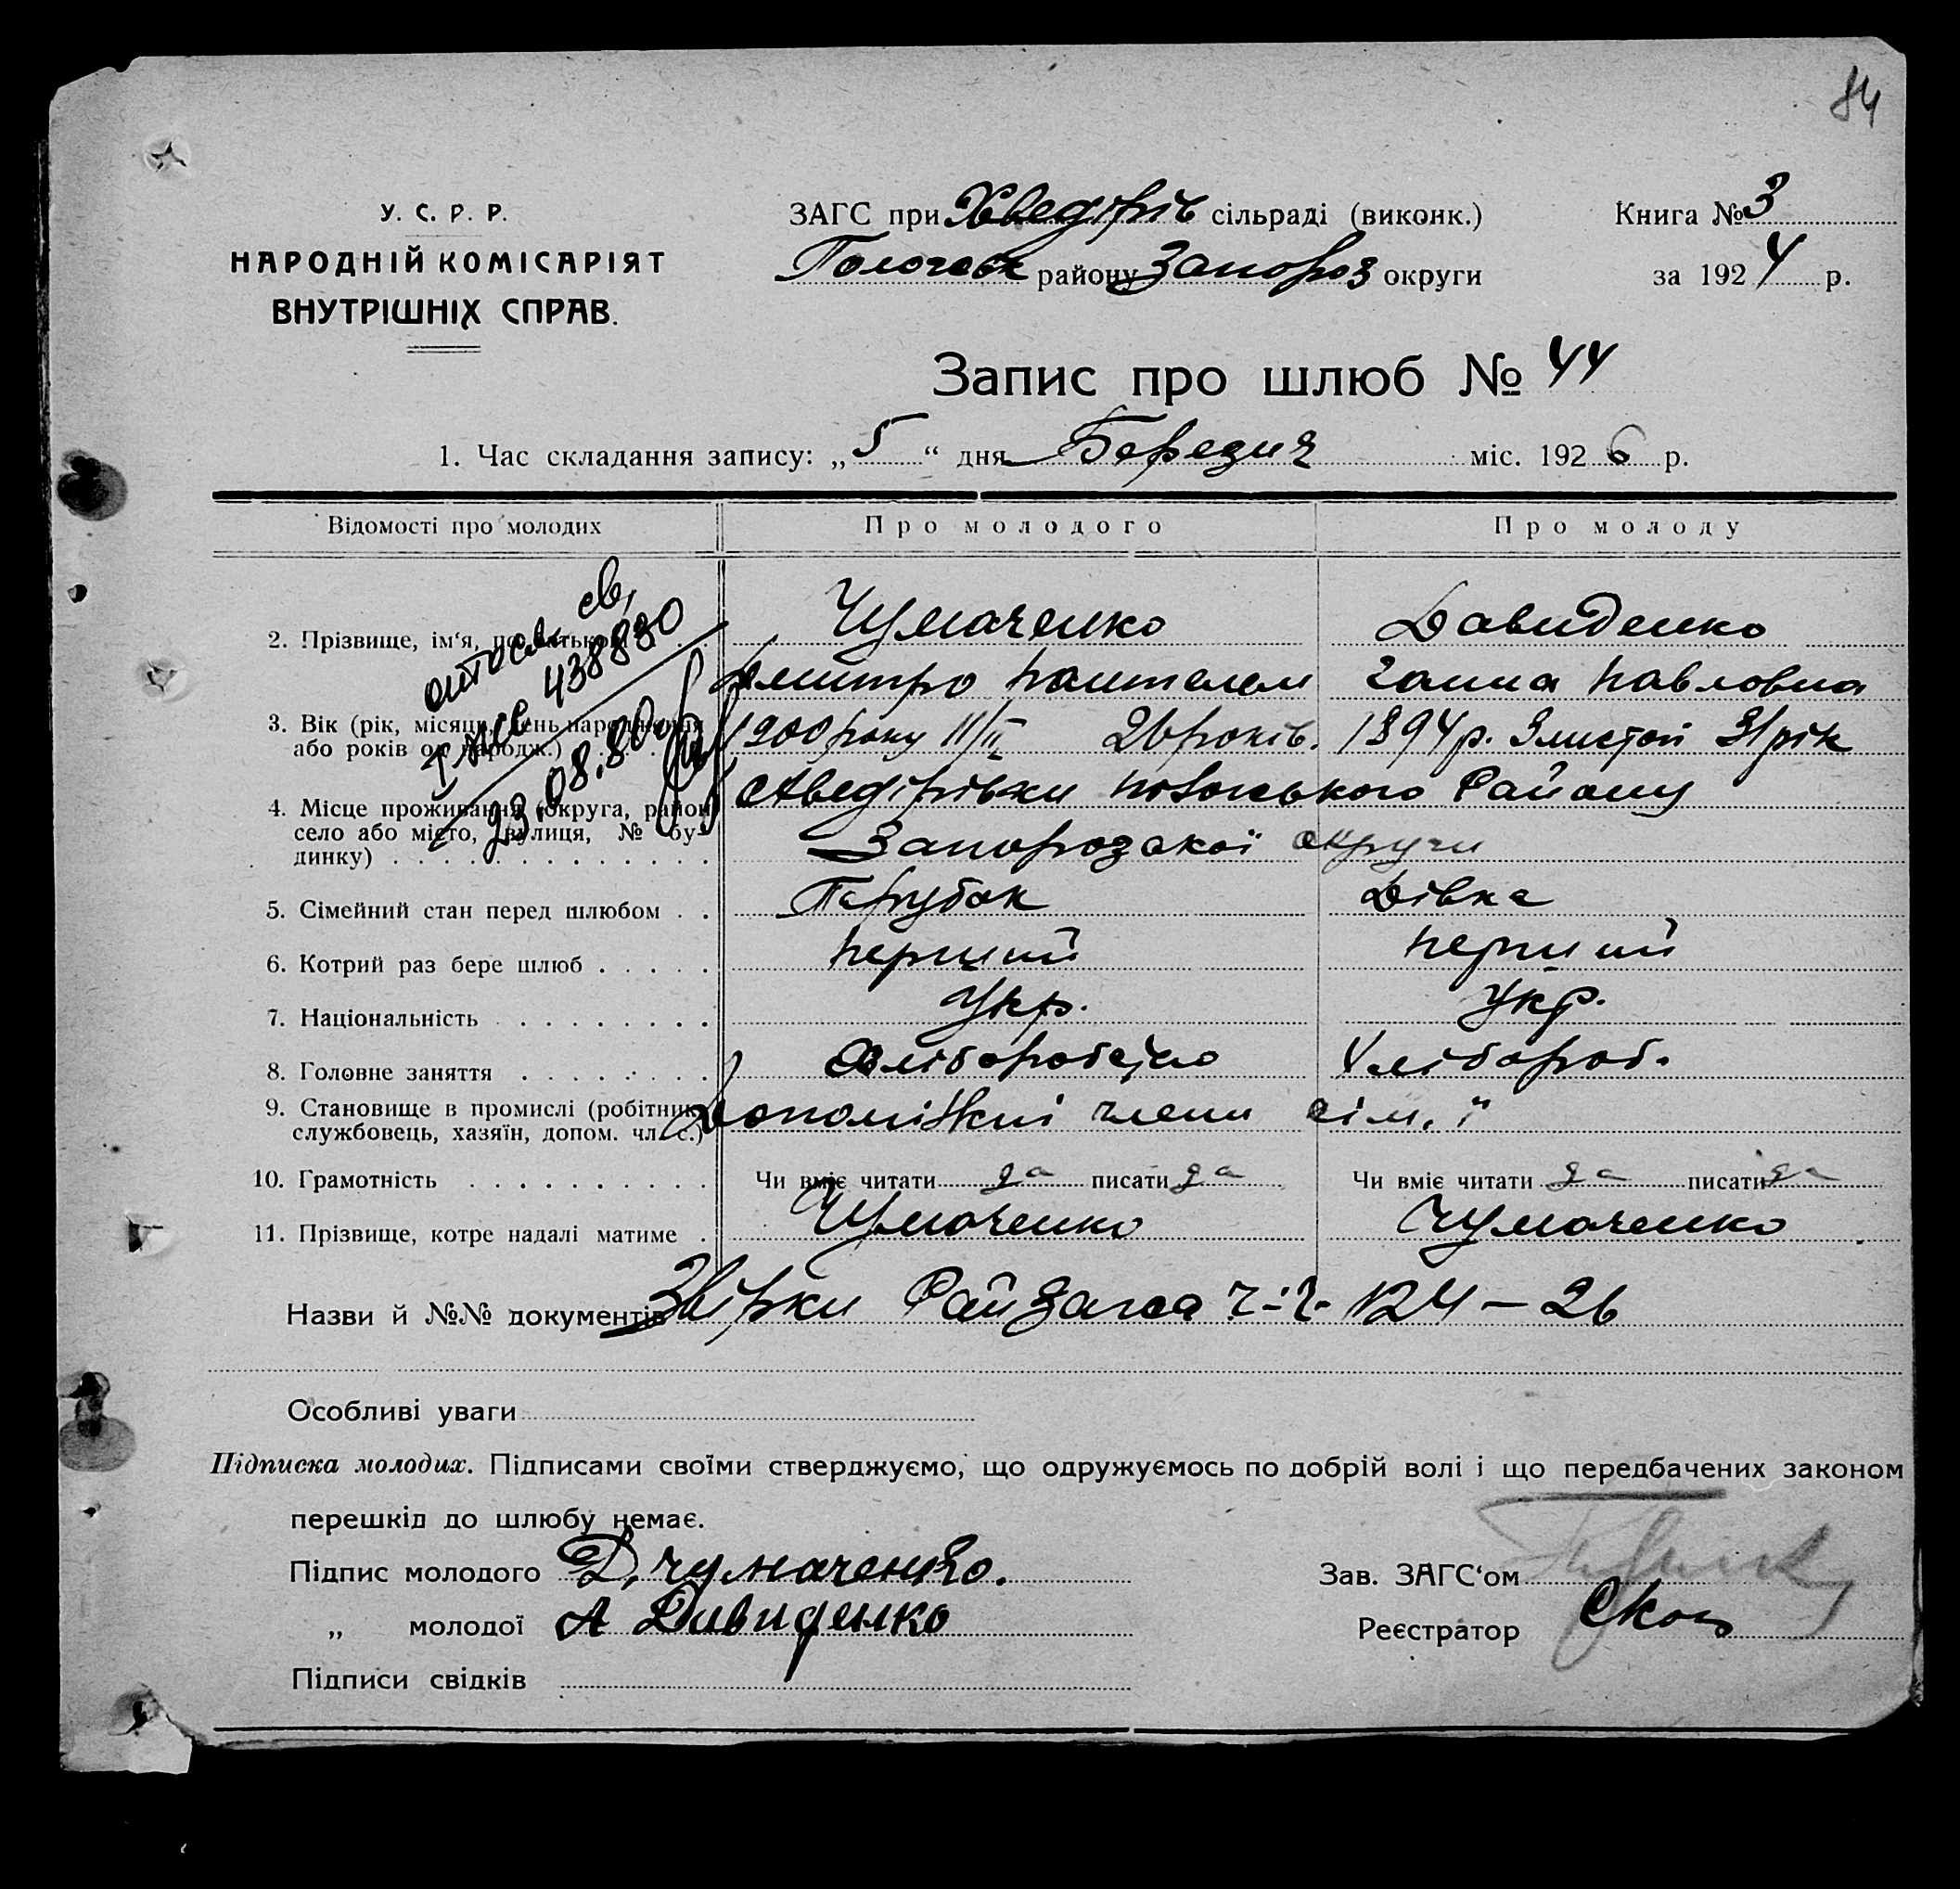 84
У. С. Р. Р.
НАРОДНІЙ КОМІСАРІЯТ
ВНУТРІШНІХ СПРАВ.
ЗАГС при Хведірів сільраді (виконк.)
Пологівськ району Запороз округи
Книга № 3
за 1924 р.
Запис про шлюб № 44
1. Час складання запису: „5“ дня Березня міс. 1926 р.
Відомості про молодих Про молодого Про молоду
2. Прізвище, ім‘я, по батькові Чумаченко Давиденко
Дмитро Пантелем Ганна Павловна
3. Вік (рік, місяць, день народження
або років од народж.) 1900 року 11/II 26 років. 1894 р. 3 листоп 31 рік
4. Місце проживання (округа, район
село або місто, вулиця, № бу-
динку)
Хведірівки Району
Запорозької округи
5. Сімейний стан перед шлюбом Парубок Дівка
6. Котрий раз бере шлюб перший перший
7. Національність Укр. Укр.
8. Головне заняття хлібороб.
9. Становище в промислі (робітник,
службовець, хазяїн, допом. чл. с.) Допоміжні члени сім.ї
10. Грамотність Чи вміє читати да писати да Чи вміє читати да писати да
11. Прізвище, котре надалі матиме Чумаченко Чумаченко
Назви й №№ документів Звірки РайЗагса 124 – 26
Особливі уваги
Підписка молодих. Підписами своїми стверджуємо, що одружуємось по добрій волі і що передбачених законом
перешкід до шлюбу немає.
Підпис молодого Д. Чумаченко.
„ молодої А Давиденко
Підписи свідків
Зав. ЗАГС‘ом
Реєстратор
св,
438880
23.08.80